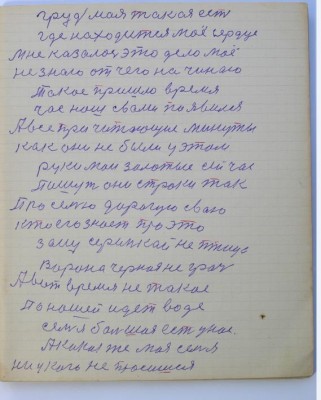 груд/моя такая ест
где находится моё сердце
мне казалос это дело моё
не знаю от чего начинаю
Такое пришло время
час наш свами появился
А все причитающие минуты
как они не были у этом
руки мои золотые сей час
пишут они строки так
Про семю дорогую сваю
кто его знает про это
зачу серипкай не птица
Ворона черная не грач
А вот время не такое
По нашей идет воде
семя большая ест унас.
А какая же моя семя
ни укого не просишся